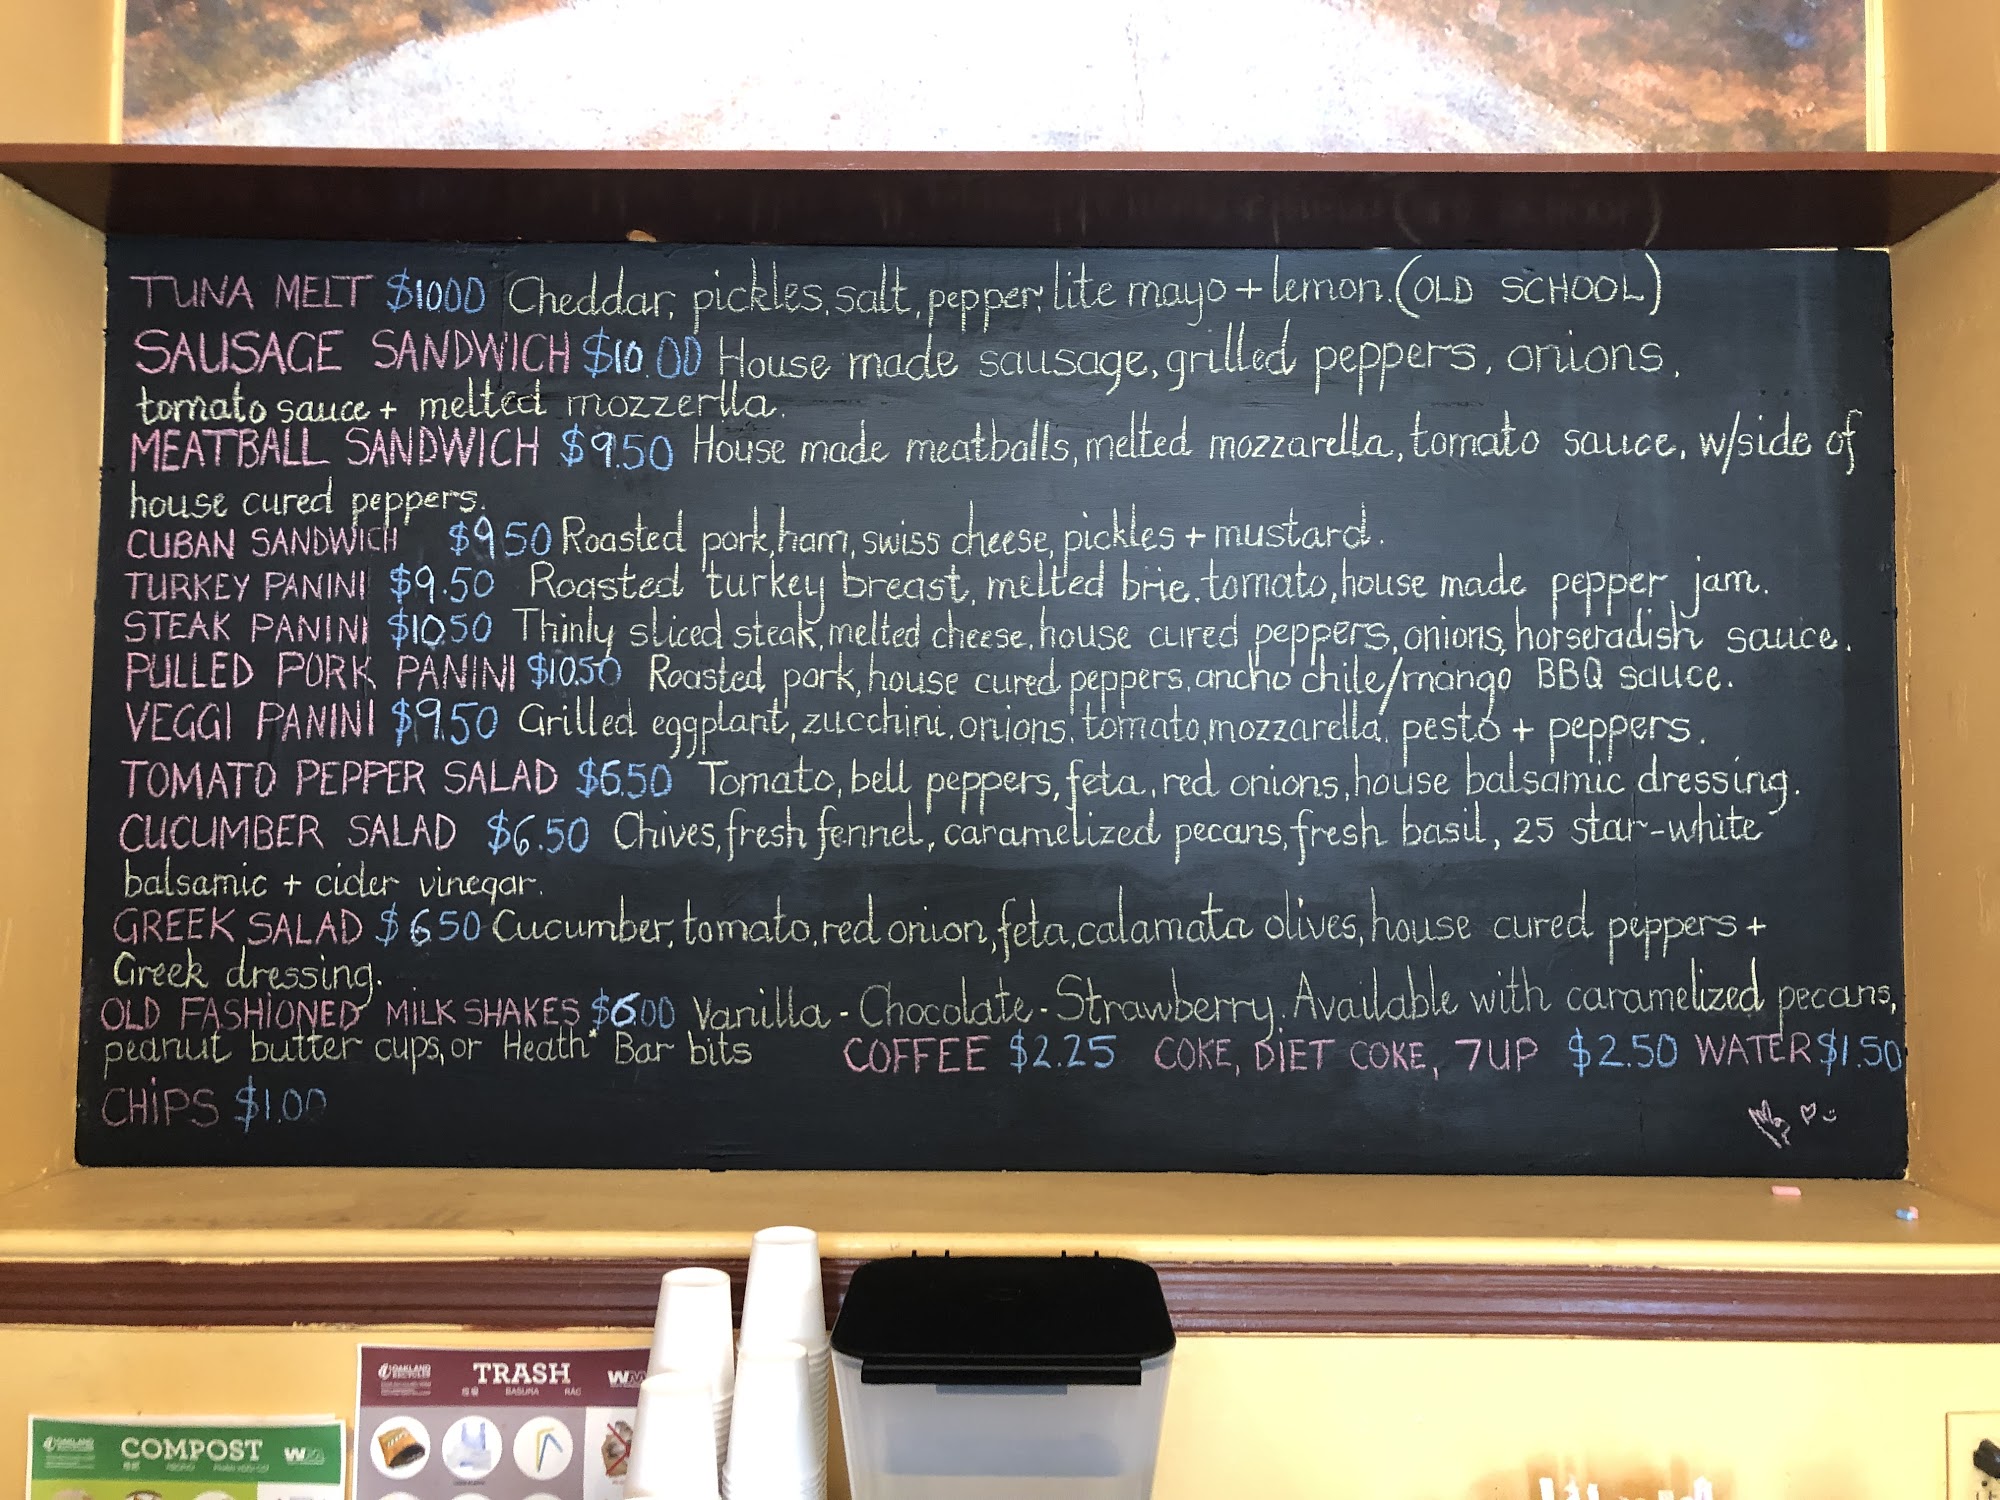 TUNA MELT $10.00 Cheddar, pickles, salt, pepper, lite mayo + lemon. (OLD SCHOOL)
SAUSAGE SANDWICH $10.00 House made sausage, grilled peppers, onions,
tomato sauce + melted mozzerlla.
MEATBALL SANDWICH $9.50 House made meatballs, melted mozzarella, tomato sauce, w/side of
house cured peppers.
CUBAN SANDWICH $9.50 Roasted pork, ham, swiss cheese, pickles + mustard.
TURKEY PANINI $9.50 Roasted turkey breast, melted brie, tomato, house made pepper jam.
STEAK PANINI $10.50 Thinly sliced steak, melted cheese, house cured peppers, onions, horseradish sauce.
PULLED PORK PANINI $10.50 Roasted pork, house cured peppers, ancho chile/mango BBQ sauce.
VEGGI PANINI $9.50 Grilled eggplant, zucchini, onions, tomato, mozzarella, pesto + peppers.
TOMATO PEPPER SALAD $6.50 Tomato, bell peppers, feta, red onions, house balsamic dressing.
CUCUMBER SALAD $6.50 Chives, fresh fennel, caramelized pecans, fresh basil, 25 star-white
balsamic + cider vinegar.
GREEK SALAD $6.50 Cucumber, tomato, red onion, feta, calamata olives, house cured peppers +
Greek dressing.
OLD FASHIONED MILK SHAKES $6.00 Vanilla - Chocolate - Strawberry. Available with caramelized pecans,
peanut butter cups, or Heath* Bar bits COFFEE $2.25 COKE, DIET COKE, 7UP $2.50 WATER $1.50
CHIPS $1.00
OAKLAND RECYCLES TRASH WM
BASURA RÁC
OAKLAND RECYCLES COMPOST WM